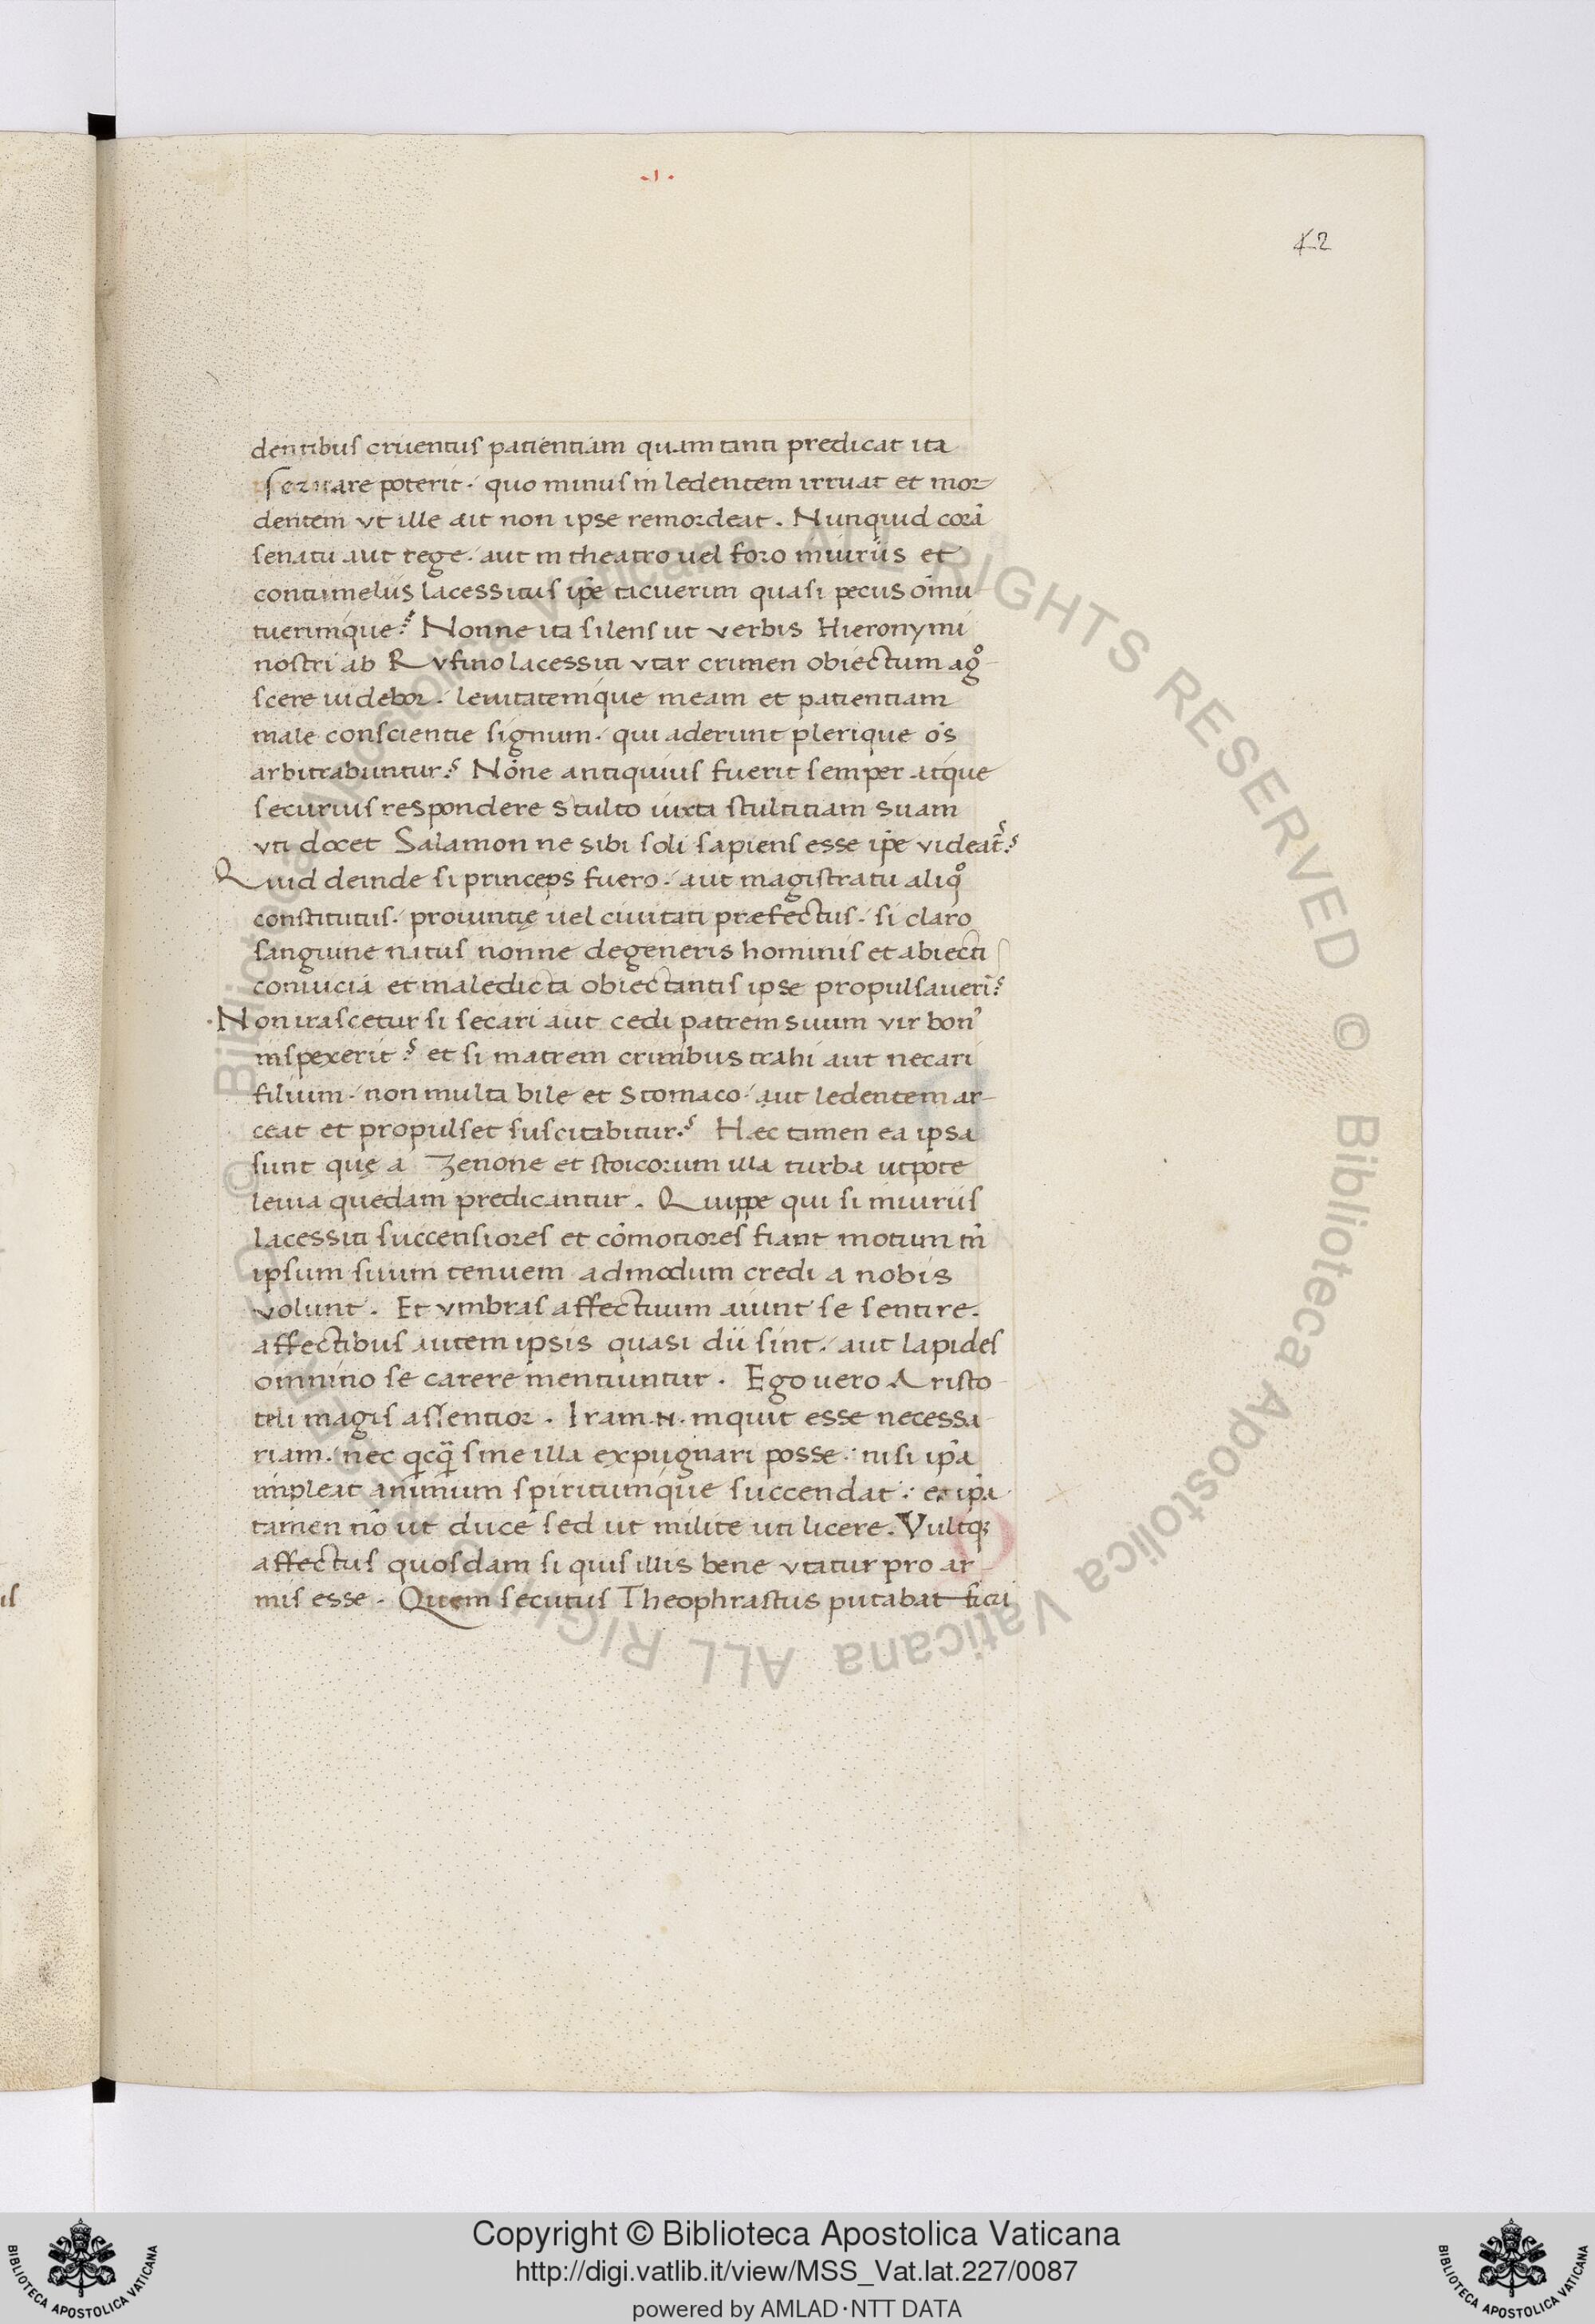 .I.
42
dentibus cruentus patientiam quam tanti predicat ita
seruare poterit. quo minus in ledentem irruat et mor
dentem vt ille ait non ipse remordeat. Nunquid corā
senatu aut rege. aut in theatro uel foro iniuriis et
contumeliis lacessitus ip̄e tacuerim quasi pecus om̄u
tuerimque? Nonne ita silens ut verbis Hieronymi
nostri ab Rvfino lacessiti vtar crimen obiectum agͦ-
scere uidebor. leuitatemque meam et patientiam
male conscientie signum. qui aderunt plerique oš
arbitrabuntur? Nōne antiquius fuerit semper atque
securius respondere stulto iuxta stultitiam suam
vti docet Salamon ne sibi soli sapiens esse ip̄e videat᷑?
Quid deinde si princeps fuero. aut magistratu aliqͦ
constitutus. prouintię uel ciuitati præfectus. si claro
sanguine natus nonne degeneris hominis et abiecti
conuicia et maledicta obiectantis ipse propulsauerī?
Non irascetur si secari aut cedi patrem suum vir bonꝰ
inspexerit? et si matrem crinibus trahi aut necari
filium. non multa bile et stomaco. aut ledentem ar-
ceat et propulset suscitabitur? Hæc tamen ea ipsa
sunt quę a Zenone et stoicorum illa turba utpote
leuia quedam predicantur. Quippe qui si iniuriis
lacessiti succensiores et cōmotiores fiant motum tn̄
ipsum suum tenuem admodum credi a nobis
volunt. Et vmbras affectuum aiunt se sentire.
affectibus autem ipsis quasi dii sint. aut lapides
omnino se carere mentiuntur. Ego uero Aristo
teli magis assentior. Iram .n. inquit esse necessa-
riam. nec qͥcq̄ sine illa expugnari posse: nisi ip̄a
impleat animum spiritumque succendat: ex ip̄a
tamen nō ut duce sed ut milite uti licere. Vultqꝫ
affectus quosdam si quis illis bene vtatur pro ar
mis esse. Quem secutus Theophrastus putabat ficti
us
© Biblioteca Apostolica Vaticana ALL RIGHTS RESERVED © Biblioteca Apostolica Vaticana ALL RIGHTS RESERVED
Copyright © Biblioteca Apostolica Vaticana
http://digi.vatlib.it/view/MSS_Vat.lat.227/0087
powered by AMLAD·NTT DATA
BIBLIOTECA APOSTOLICA VATICANA
BIBLIOTECA APOSTOLICA VATICANA